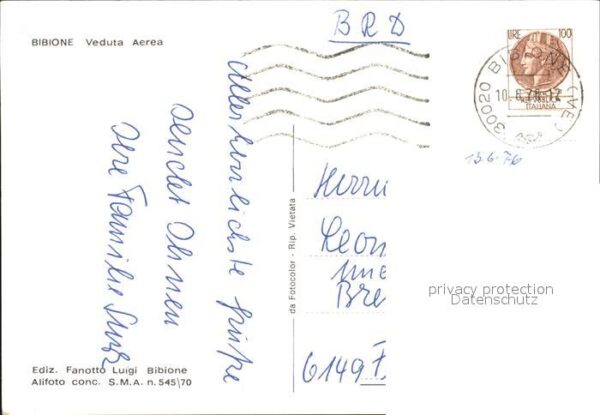 BRD
BIBIONE Veduta Aerea
LIRE 100
ITALIANA
30020 BIBIONE (VE)
10.6.76-17
13.6.76
Allerherzlichste Grüße
sendet Ihnen
Ihre Familie
da Fotocolor - Rip. Vietata
Herrn
Leon
Bre
6149 F
privacy protection
Datenschutz
Ediz. Fanotto Luigi Bibione
Alifoto conc. S.M.A. n. 545\70